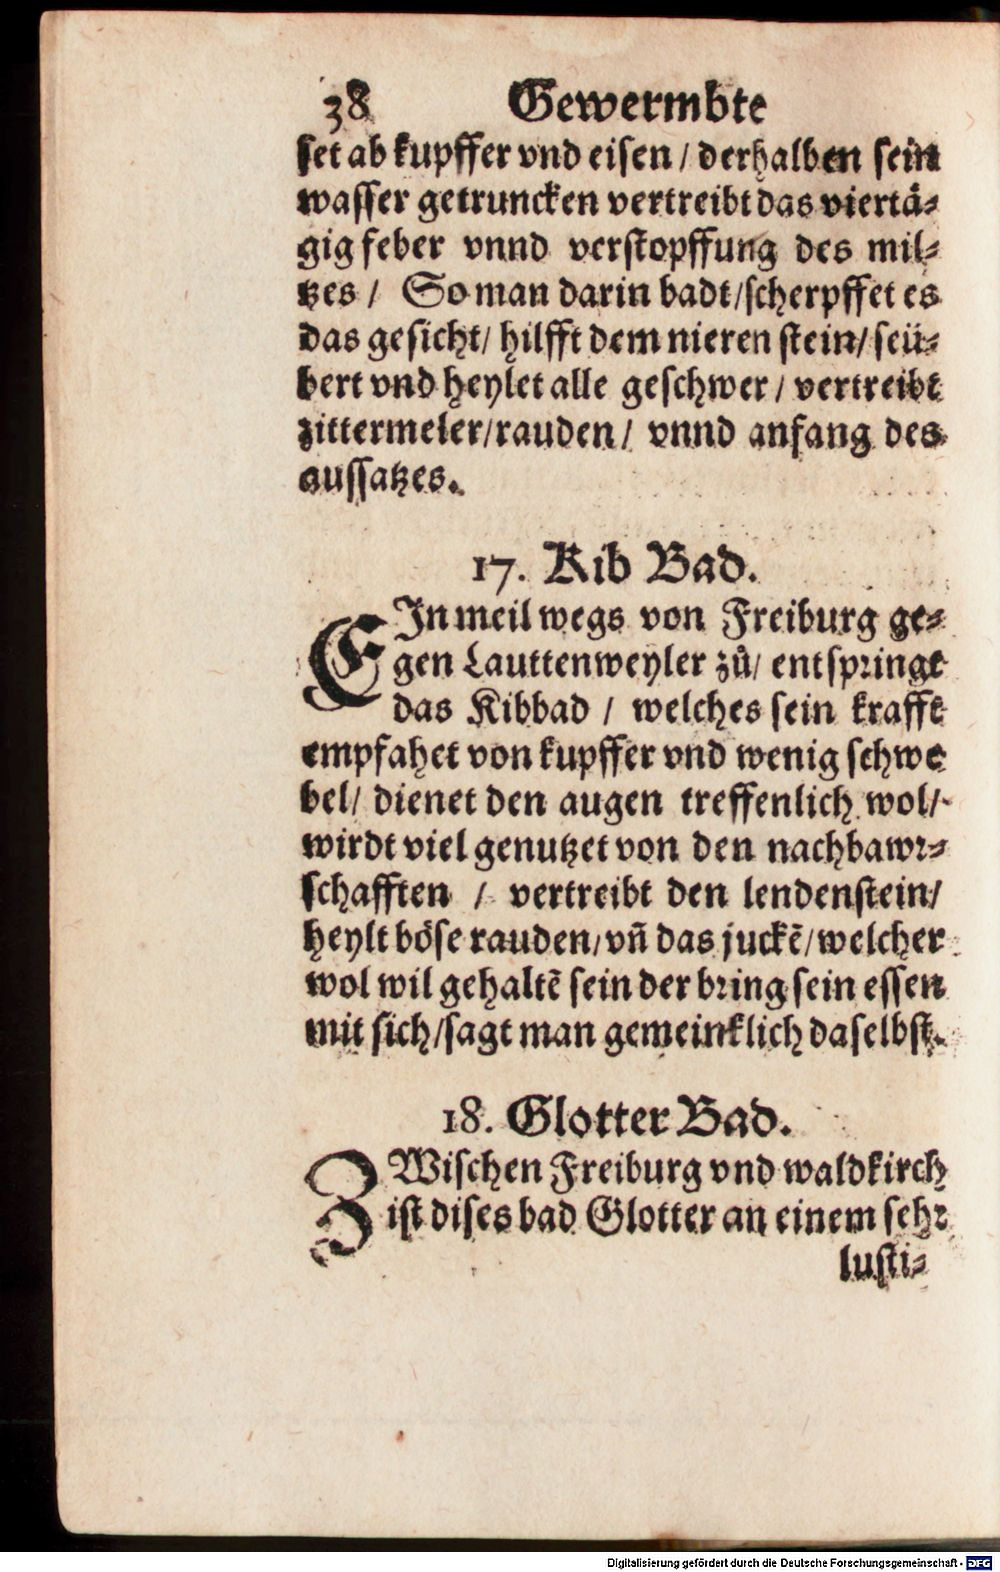 38 Gewermbte
set ab kupffer vnd eisen / derhalben sein
wasser getruncken vertreibt das viertä-
gig feber vnnd verstopffung des mil-
tzes / So man darin badt/scherpffet es
das gesicht/ hilfft dem nieren stein/ seü-
bert vnd heylet alle geschwer / vertreibt
zittermeler/rauden/ vnnd anfang des
aussatzes.
17. Kib Bad.
EIn meil wegs von Freiburg ge-
gen Lauttenweyler zů/ entspringt
das Kibbad / welches sein krafft
empfahet von kupffer vnd wenig schwe
bel/ dienet den augen treffenlich wol/
wirdt viel genutzet von den nachbawr-
schafften / vertreibt den lendenstein/
heylt böse rauden/vñ das juckē/welcher
wol wil gehaltē sein der bring sein essen
mit sich/sagt man gemeinklich daselbst.
18. Glotter Bad.
ZWischen Freiburg vnd waldkirch
ist dises bad Glotter an einem sehr
lusti-
Digitalisierung gefördert durch die Deutsche Forschungsgemeinschaft - DFG